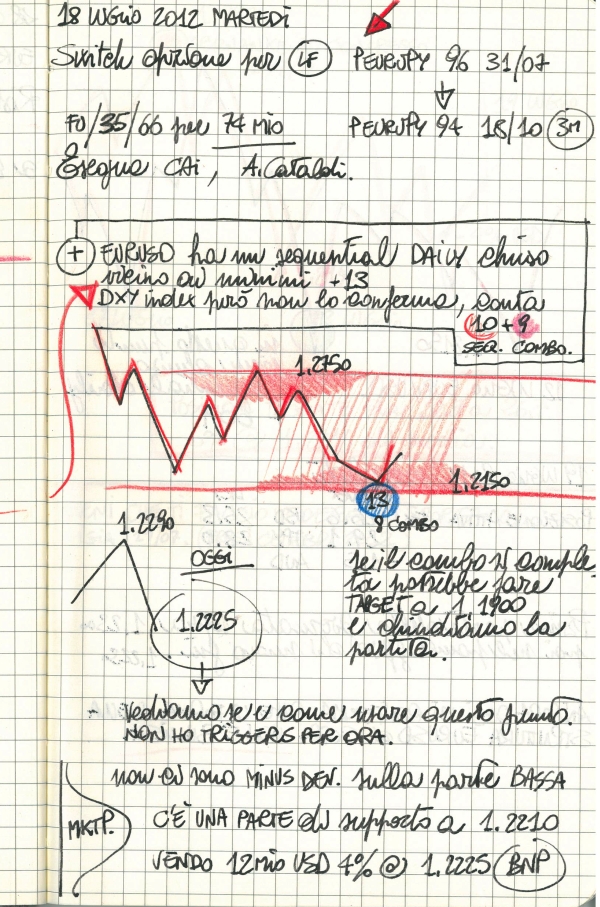 18 LUGLIO 2012 MARTEDÌ
Switch opzione per LF PEURUPY 96 31/07
FU/35/66 per 74 MIO PEURUPY 94 18/10 3M
Esegue CAi, A. Cataldi.
+ EURUSD ha un sequential DAILY chiuso
vicino ai minimi +13
DXY index però non lo conferma, conta
10 + 9
SEQ. COMBO.
1,2750
1,2150
13
8 COMBO
1.2290
OGGI
1.2225
se il combo si comple
ta potrebbe fare
TARGET a 1,1900
e chiudiamo la
partita.
Vediamo se e come usare questo punto.
NON HO TRIGGERS PER ORA.
non ci sono MINUS DEV. sulla parte BASSA
MKTP. C'È UNA PARTE di supporto a 1.2210
VENDO 12 Mio USD 4% @ 1.2225 BNP